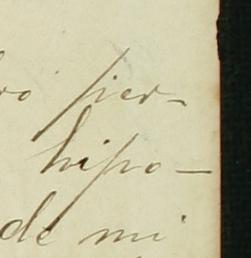 ro sier-
hipo-
de mi